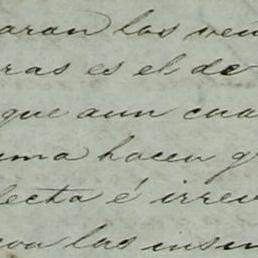 aran los ven
ras es el de
que aun cua
uma hacen g
lecta é irrev
con las insin